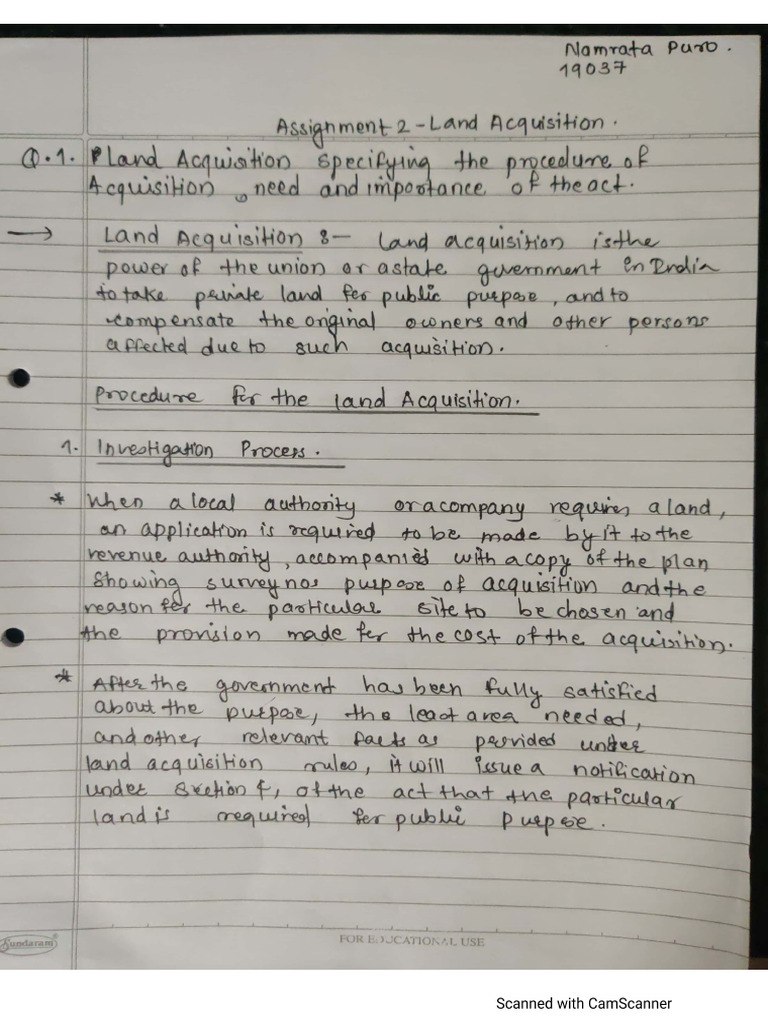 Namrata Puro.
19037
Assignment 2 - Land Acquisition.
Q.1. Land Acquisition specifying the procedure of
Acquisition, need and importance of the act.
→ Land Acquisition :- land acquisition is the
power of the union or a state government in India
to take private land for public purpose, and to
compensate the original owners and other persons
affected due to such acquisition.
Procedure for the land Acquisition.
1. Investigation Process.
* When a local authority or a company requires a land,
an application is required to be made by it to the
revenue authority, accompanied with a copy of the plan
showing survey nos purpose of acquisition and the
reason for the particular site to be chosen and
the provision made for the cost of the acquisition.
* After the government has been fully satisfied
about the purpose, the least area needed,
and other relevant facts as provided under
land acquisition rules, it will issue a notification
under Section 4, of the act that the particular
land is required for public purpose.
Sundaram
FOR EDUCATIONAL USE
Scanned with CamScanner